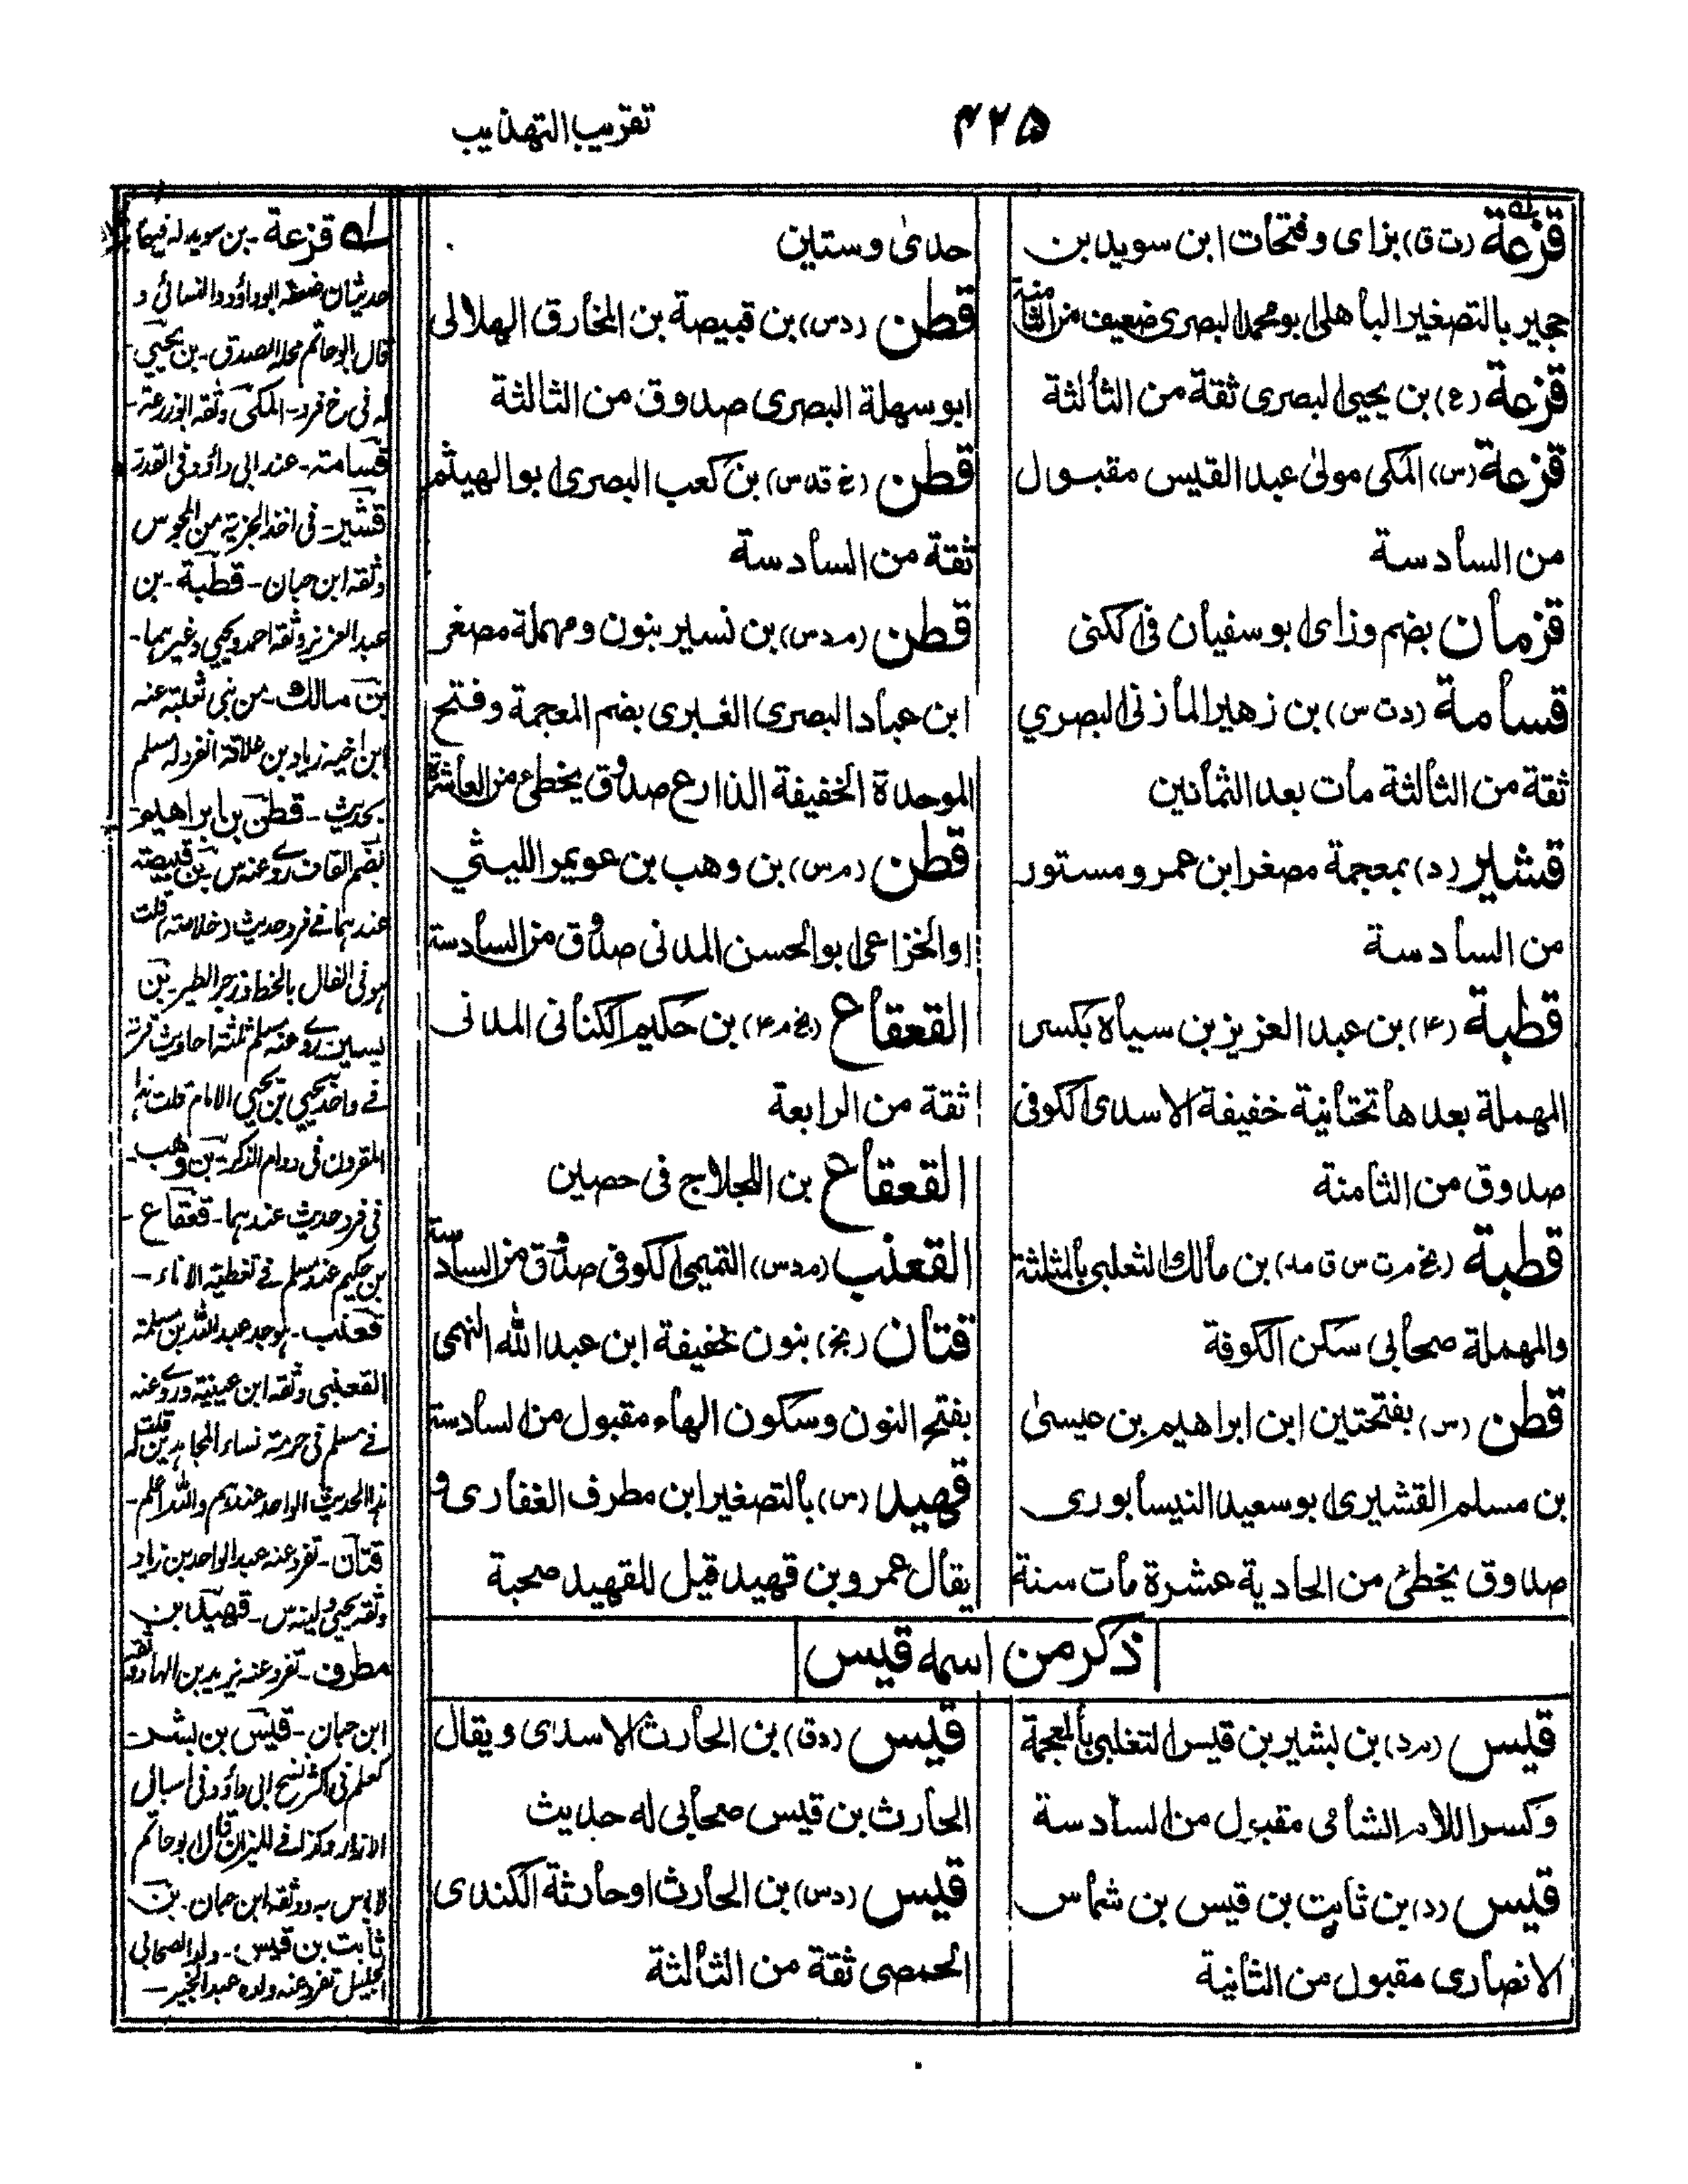 تقریب التهذیب
۴۲۵
قزعة (ت ق) بزای وفتحات ابن سوید بن
حجیر بالتصغیر الباهلی ابو محمد البصری ضعیف من الثامنة
قزعة (ع) بن یحیی البصری ثقة من الثالثة
قزعة (س) المکی مولی عبد القیس مقبول
من السادسة
قزمان بضم وزای ابو سفیان فی الکنی
قسامة (د ت س) بن زهیر المازنی البصري
ثقة من الثالثة مات بعد الثمانین
قشیر (د) بمعجمة مصغر ابن عمرو مستور
من السادسة
قطبة (م۴) بن عبد العزیز بن سیاه بکسر
المهملة بعدها تحتانیة خفیفة الاسدی الکوفی
صدوق من الثامنة
قطبة (عخ م ت س ق) بن مالك الثعلبی بالمثلثة
والمهملة صحابی سکن الکوفة
قطن (س) بفتحتین ابن ابراهیم بن عیسیٰ
بن مسلم القشیری ابو سعید النیسابوری
صدوق یخطئ من الحادیة عشرة مات سنة
حدیٰ وستین
قطن (د س) بن قبیصة بن المخارق الهلالی
ابو سهلة البصری صدوق من الثالثة
قطن (خ قد س) بن کعب البصری ابو الهیثم
ثقة من السادسة
قطن (م د س) بن نسیر بنون ومهملة مصغر
ابن عباد البصری الغبری بضم المعجمة وفتح
الموحدة الخفیفة الذارع صدوق یخطئ من العاشرة
قطن (م س) بن وهب بن عویمر اللیثي
او الخزاعی ابو الحسن المدنی صدوق من السادسة
القعقاع (بخ م۴) بن حکیم الکنانی المدنی
ثقة من الرابعة
القعقاع بن اللجلاج فی حصین
القعنب (م د س) التمیمی الکوفی صدوق من السادسة
قنان (بخ) بنون خفیفة ابن عبد الله النهمی
بفتح النون وسکون الهاء مقبول من السادسة
قهید (س) بالتصغیر ابن مطرف الغفاری و
یقال عمرو بن قهید قیل للقهید صحبة
ذکر من اسمه قیس
قیس (د) بن بشیر بن قیس التغلبی بالمعجمة
وکسر اللام الشامی مقبول من السادسة
قیس (د) بن ثابت بن قیس بن شماس
الانصاری مقبول من الثانیة
قیس (د ق) بن الحارث الاسدی ویقال
الحارث بن قیس صحابی له حدیث
قیس (د س) بن الحارث او حارثة الکندی
الحمصی ثقة من الثالثة
قزعة - بن سوید له فیهما
حدیثان ضعفه ابو داؤد والنسائی و
قال ابو حاتم محله الصدق - بن یحیي
له فی خ فرد - المکی وثقه ابو زرعة -
قسامة - عند ابی داؤد فی القدر
قشیر - فی اخذ الجزیة من المجوس
وثقه ابن حبان - قطبة - بن
عبد العزیز وثقه احمد ویحیي وغیرهما -
بن مالك - من بنی ثعلبة عنه
ابن اخیه زیاد بن علاقة انفرد له مسلم
بحدیث - قطن بن ابراهیم -
عندهما فی فرد حدیث
هو فی الفال بالخط وزجر الطیر - بن
فی فرد حدیث عندهما - قعقاع -
بن حکیم عند مسلم فی تغطیة الاناء -
قعنب - هو جد عبد الله بن مسلمة
القعنبی وثقه ابن عیینة
فی مسلم فی حرمة نساء المجاهدین
هذا الحدیث الواحد عندهم والله اعلم -
قنان - تفرد عنه عبد الواحد بن زیاد
وثقه یحیي ولینه س - قهید بن
مطرف - تفرد عنه یزید بن الهاد وثقه
ابن حبان - قیس بن بشر
لا باس به ووثقه ابن حبان - بن
ثابت بن قیس - ولد الصحابی
الجلیل تفرد عنه ولده عبد الخبیر -